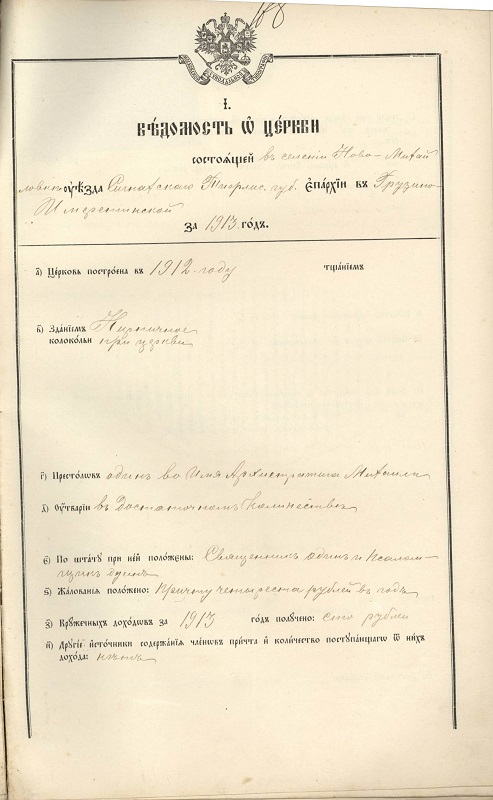 188
І.
ВѢДОМОСТЬ Ѡ ЦЕРКВИ
СОСТОЯЩЕЙ въ селеніи Ново-Михай
ловкѣ ОУѢЗДА Сигнахскаго Тифлис. губ. ЕПАРХІИ ВЪ Грузино-
Имеретинской
ЗА 1913 ГОДЪ.
а) Церковь построена въ 1912 году тщаніемъ
в) Зданіемъ Кирпичное
колокольни при церкви
г) Престоловъ одинъ во Имя Архистратига Михаила
д) Оутвари въ достаточномъ количествѣ
є) По штату при ней положены: Священникъ одинъ и Псалом-
щикъ одинъ
ѕ) Жалованья положено: Причту четыреста рублей въ годъ
з) Кружечныхъ доходовъ за 1913 годъ получено: сто рубл
и) Другіе источники содержанія членовъ причта и количество поступающаго ѿ нихъ
дохода: нѣтъ